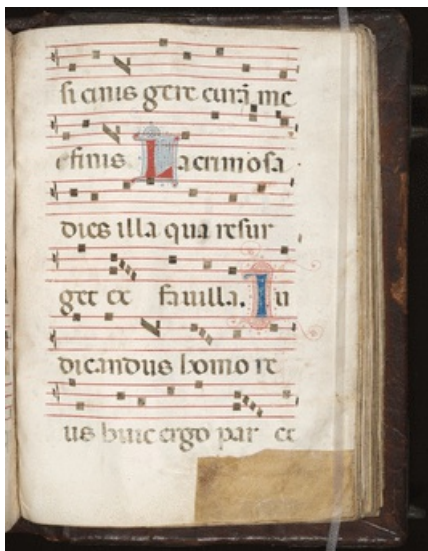 si cinis gere curã me
i finis Lacrimosa
dies illa qua resur
get ex favilla. Iu
dicandus homo re
us huic ergo par ce